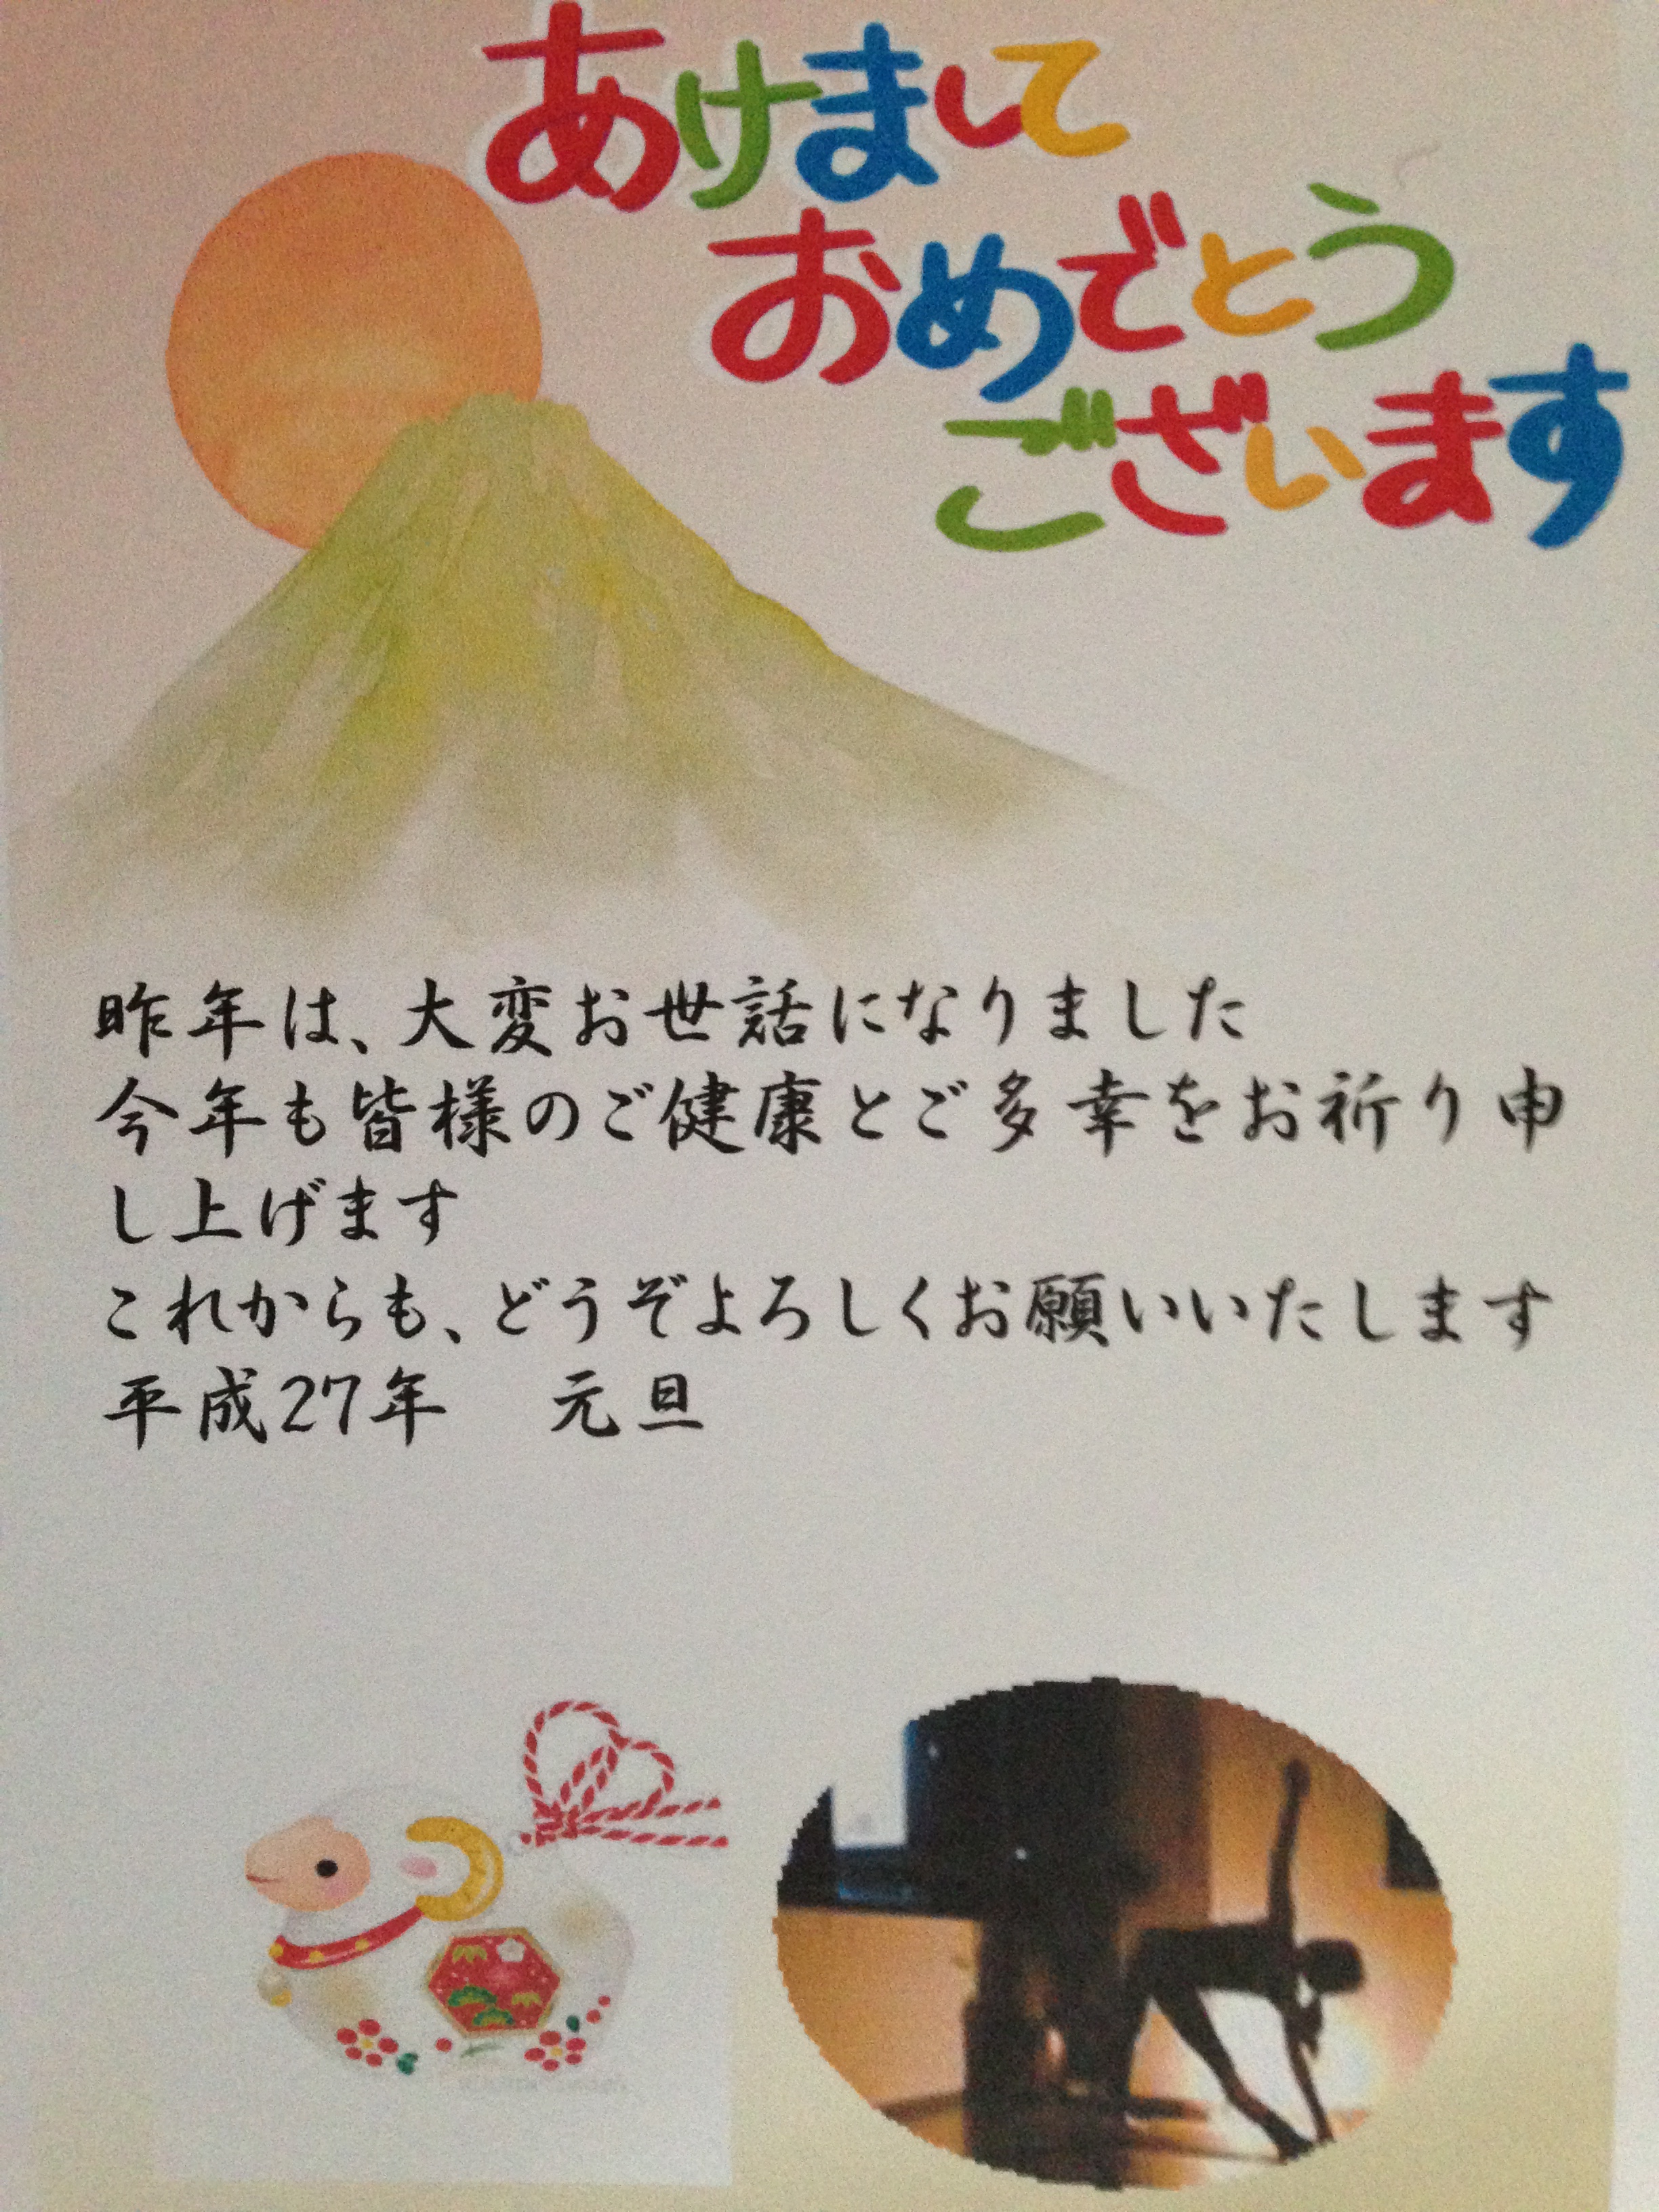 あけまして
おめでとう
ございます
昨年は、大変お世話になりました
今年も皆様のご健康とご多幸をお祈り申
し上げます
これからも、どうぞよろしくお願いいたします
平成27年　元旦